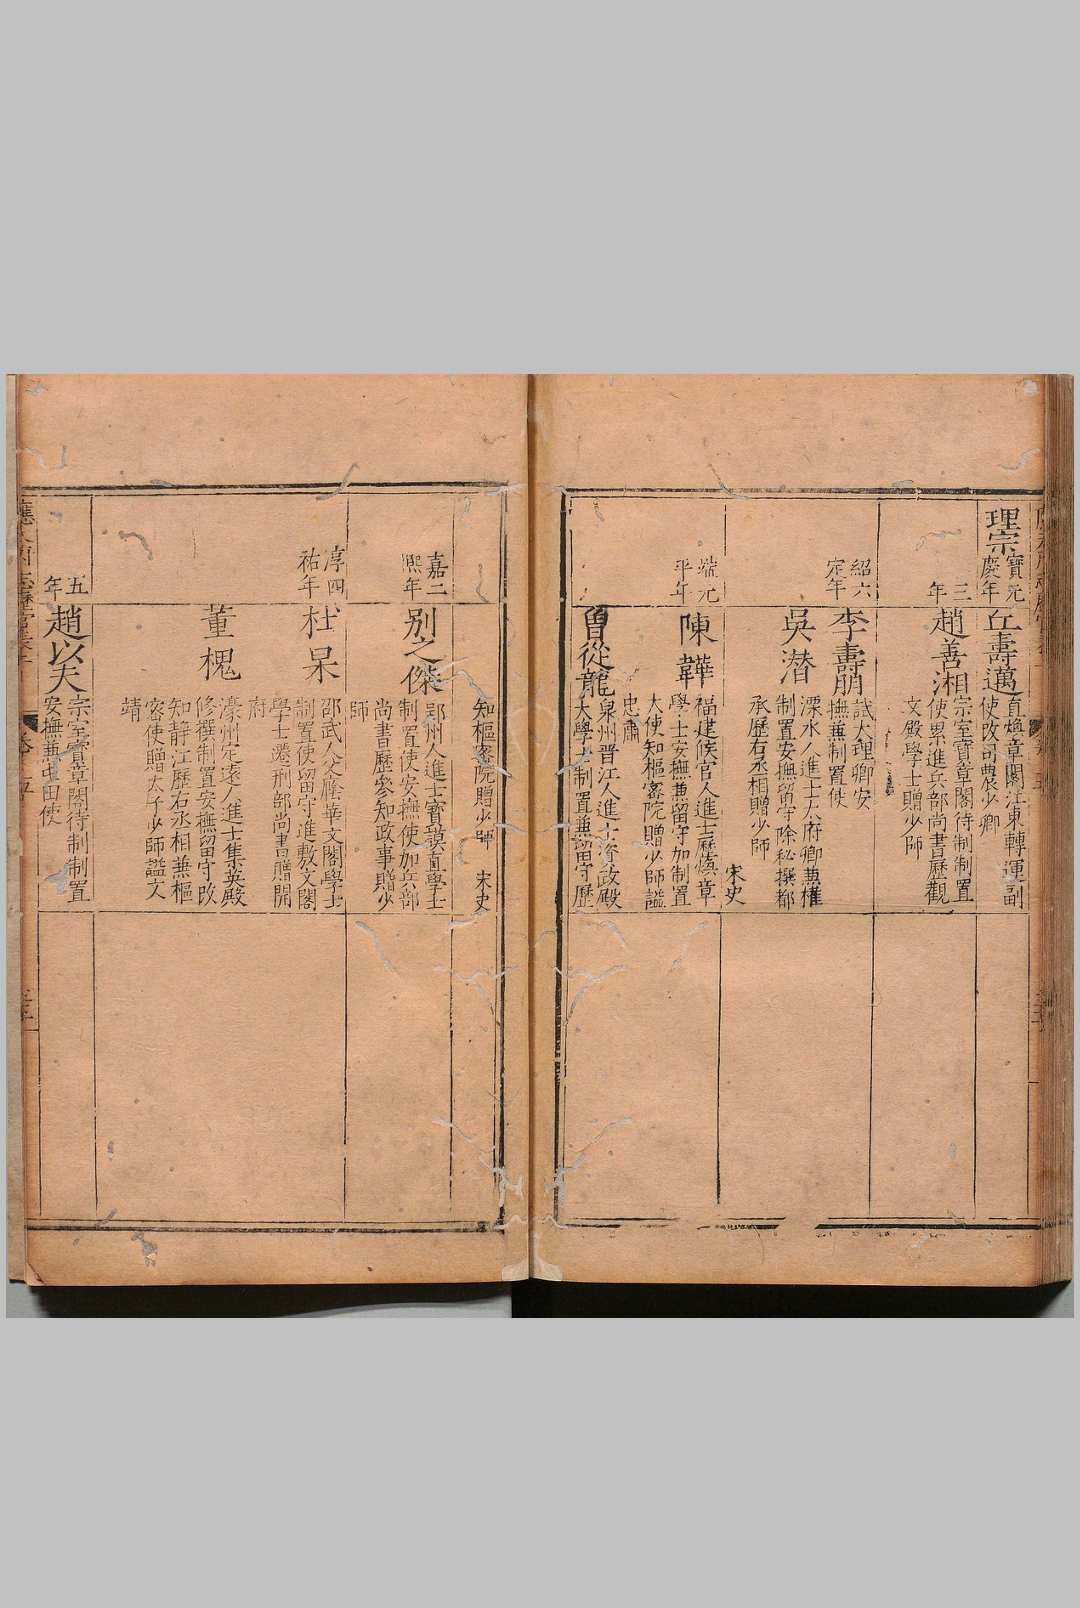 理宗
寶元
慶年
丘壽邁
直煥章閣江東轉運副
使改司農少卿
三
年
趙善湘
宗室寶章閣待制制置
使累進兵部尚書歷觀
文殿學士贈少師
紹六
定年
李壽朋
試大理卿安
撫兼制置使
吳潛
溧水人進士太府卿兼權
制置安撫留守除秘撰都
承歷右丞相贈少師
宋史
端元
平年
陳韡
福建候官人進士歷煥章
學士安撫兼留守加制置
大使知樞密院贈少師諡
忠肅
曾從龍
泉州晋江人進士資政殿
大學士制置兼留守歷
知樞密院贈少師 宋史
嘉二
熙年
別之傑
郢州人進士寶謨直學士
制置使安撫使加兵部
尚書歷參知政事贈少
師
淳四
祐年
杜杲
邵武人父廕華文閣學士
制置使留守進敷文閣
學士遷刑部尚書贈開
府
董槐
濠州定遠人進士集英殿
修撰制置安撫留守改
知静江歷右丞相兼樞
密使贈太子少師諡文
靖
五
年
趙以夫
宗室寶章閣待制制置
安撫兼屯田使